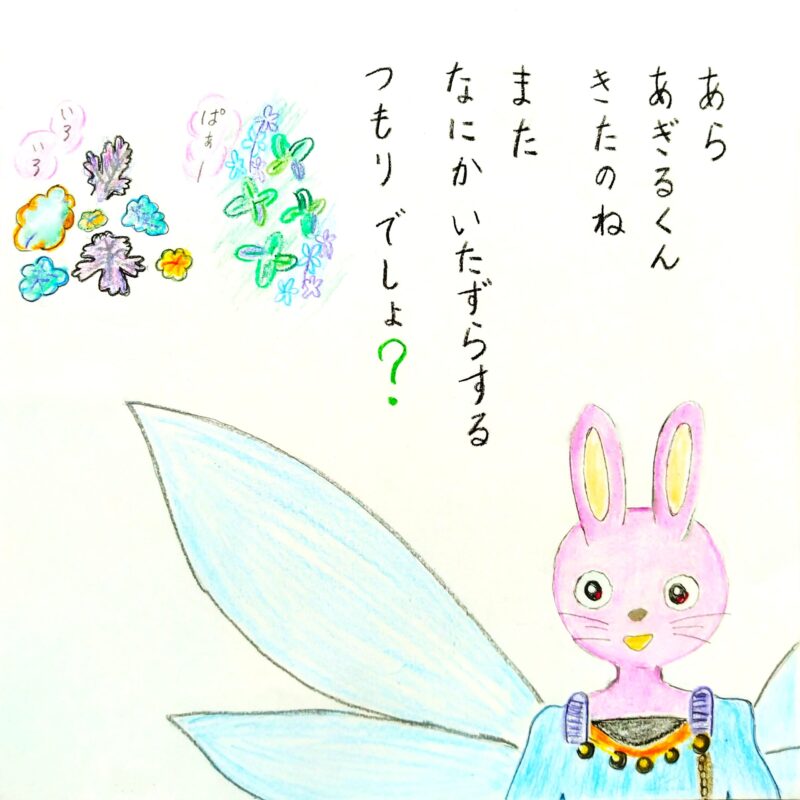 あら
あぎるくん
きたのね
また
なにか いたずらする
つもり でしょ?
ぱぁー
いろ
いろ